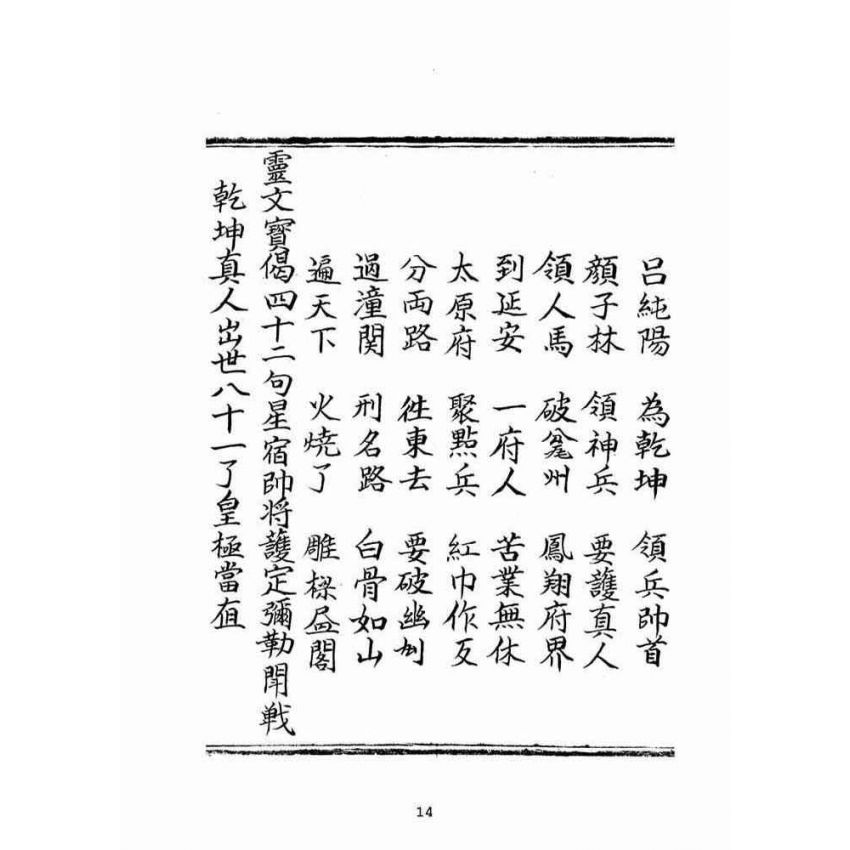 呂純陽 為乾坤 領兵帥首
顏子林 領神兵 要護真人
領人馬 破兖州 鳳翔府界
到延安 一府人 苦業無休
太原府 聚點兵 紅巾作反
分両路 徃東去 要破幽州
過潼関 刑名路 白骨如山
遍天下 火燒了 雕樑閣
靈文寳偈四十二句星宿帥将護定彌勒閗戦
乾坤真人出世八十一了皇極當直
14